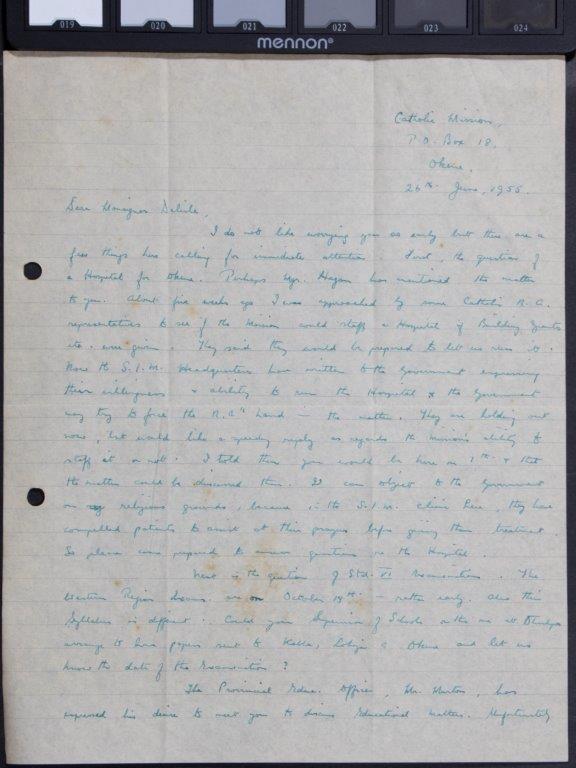 019 020 021 022 023 024
mennon®
Catholic Mission,
P.O. Box 18,
Okene,
26th June, 1955.
Dear Monsignor Delisle,
I do not like worrying you so early but there are a
few things here calling for immediate attention. First, the question of
a Hospital for Okene. Perhaps Mgr. Hagan has mentioned the matter
to you. About five weeks ago I was approached by some Catholic N.A.
representatives to see if the Mission would staff a Hospital if Building Grants
etc. were given. They said they would be prepared to let us run it.
Now the S.I.M. Headquarters have written to the Government expressing
their willingness & ability to run the Hospital & the Government
may try to force the N.A's hand in the matter. They are holding out
now, but would like a speedy reply as regards the Mission's ability to
staff it or not. I told them you would be here on & that
the matter could be discussed then. can object to the Government
on religious grounds, because in the S.I.M. Clinic here, they have
compelled patients to assist at their prayers before giving them treatment.
So please come prepared to answer questions re the Hospital.
Next is the question of Std. VI Examinations. The
Western Region Exams. are on October 18th - rather early. Also their
Syllabus is different. Could your Supervisor of Schools or the one at
arrange to have papers sent to Kabba, Lokoja & Okene and let us
know the date of the Examination?
The Provincial Educ. Officer, Mr. has
expressed his desire to meet you to discuss Educational matters. Unfortunately